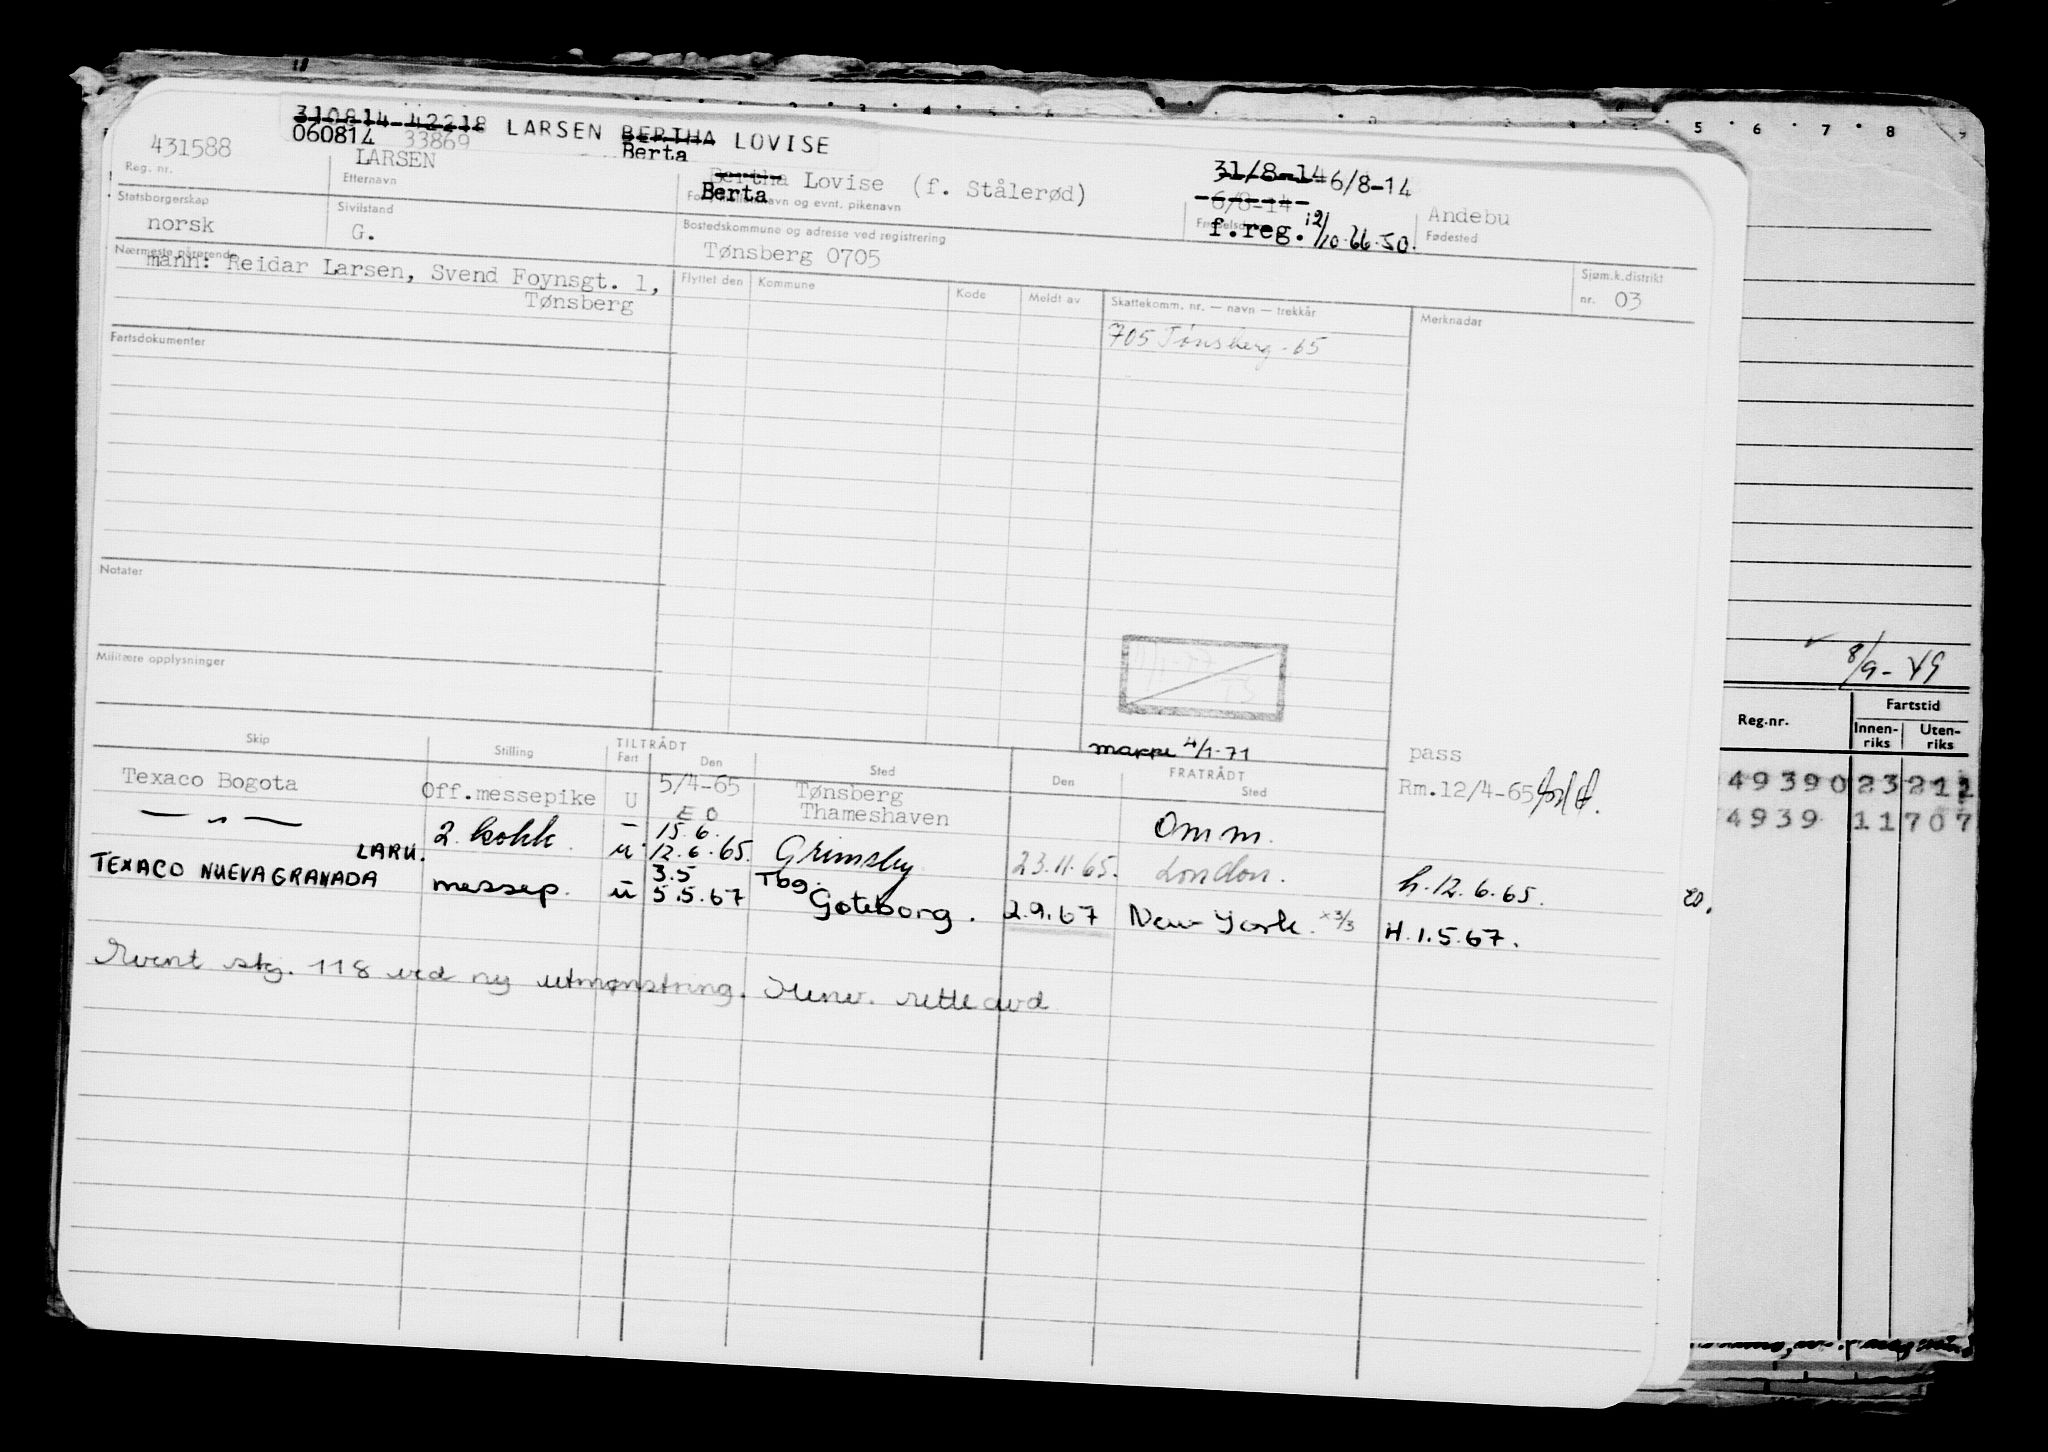 310814 42218 LARSEN BERTHA LOVISE
060814 33869 Berta
431588 LARSEN Bertha Lovise (f. Stålerød) 31/8-14 6/8-14
Reg. nr. Etternavn Berta 6/8-14 Andebu
For-, mellomnavn og evnt. pikenavn f.reg. 12/10-66.50. Fødested
Statsborgerskap Sivilstand Bostedskommune og adresse ved registrering
norsk G. Tønsberg 0705
Nærmeste pårørende
mann: Reidar Larsen, Svend Foynsgt. 1,
Tønsberg
Flyttet den Kommune Kode Meldt av Skattekomm. nr. — navn — trekkår Merknader
Sjøm.k.distrikt
nr. 03
705 Tønsberg - 65
Fartsdokumenter
Notater
Militære opplysninger
mappe 4/1-71
Skip Stilling TILTRÅDT FRATRÅDT
Fart Den Sted Den Sted
pass
Texaco Bogota Off.messepike U 5/4-65 Tønsberg Rm.12/4-65
E O Thameshaven
— " — 2. kokk. - 15.6. Omm.
LARV. u. 12.6.65. Grimsby 23.11.65. London. h.12.6.65.
TEXACO NUEVA GRANADA messep. u 3.5 Tbg.
5.5.67 Gøteborg. 2.9.67 New York. x3/3 H.1.5.67.
Event stg. 118 ved ny utmønstring. Henv. rette avd
5 6 7 8 9
8/9-49
Reg.nr. Fartstid
Innenriks Utenriks
49390 23 211
4939 11 707